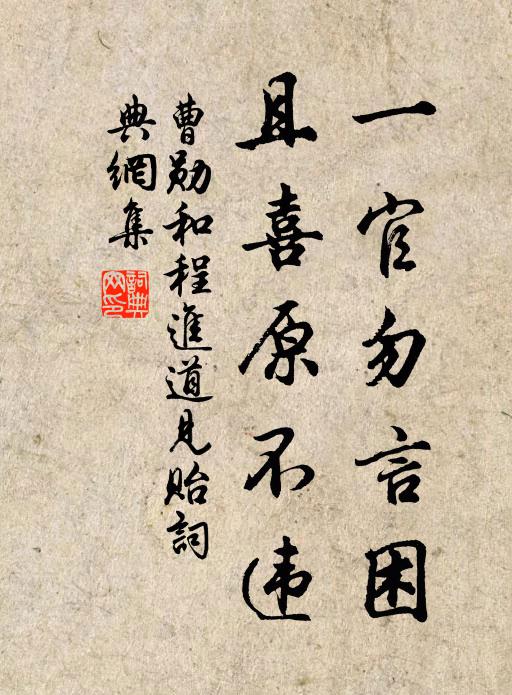 一官勿言困
且喜原不违
曹勛和程進道見貽詞
典網集
詞典网印